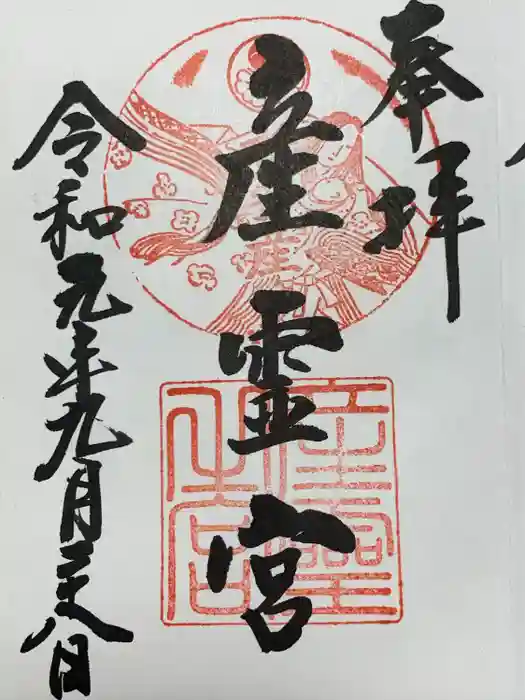 奉拝
産霊宮
令和元年九月二十八日